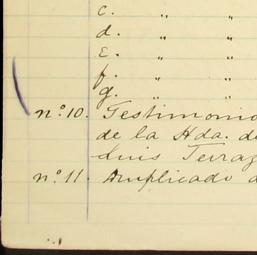 c. " "
d. " "
e. " "
f. " "
g. " "
nº. 10. Testimonio
de la Hda. de
Luis Terraz
nº. 11. Duplicado d